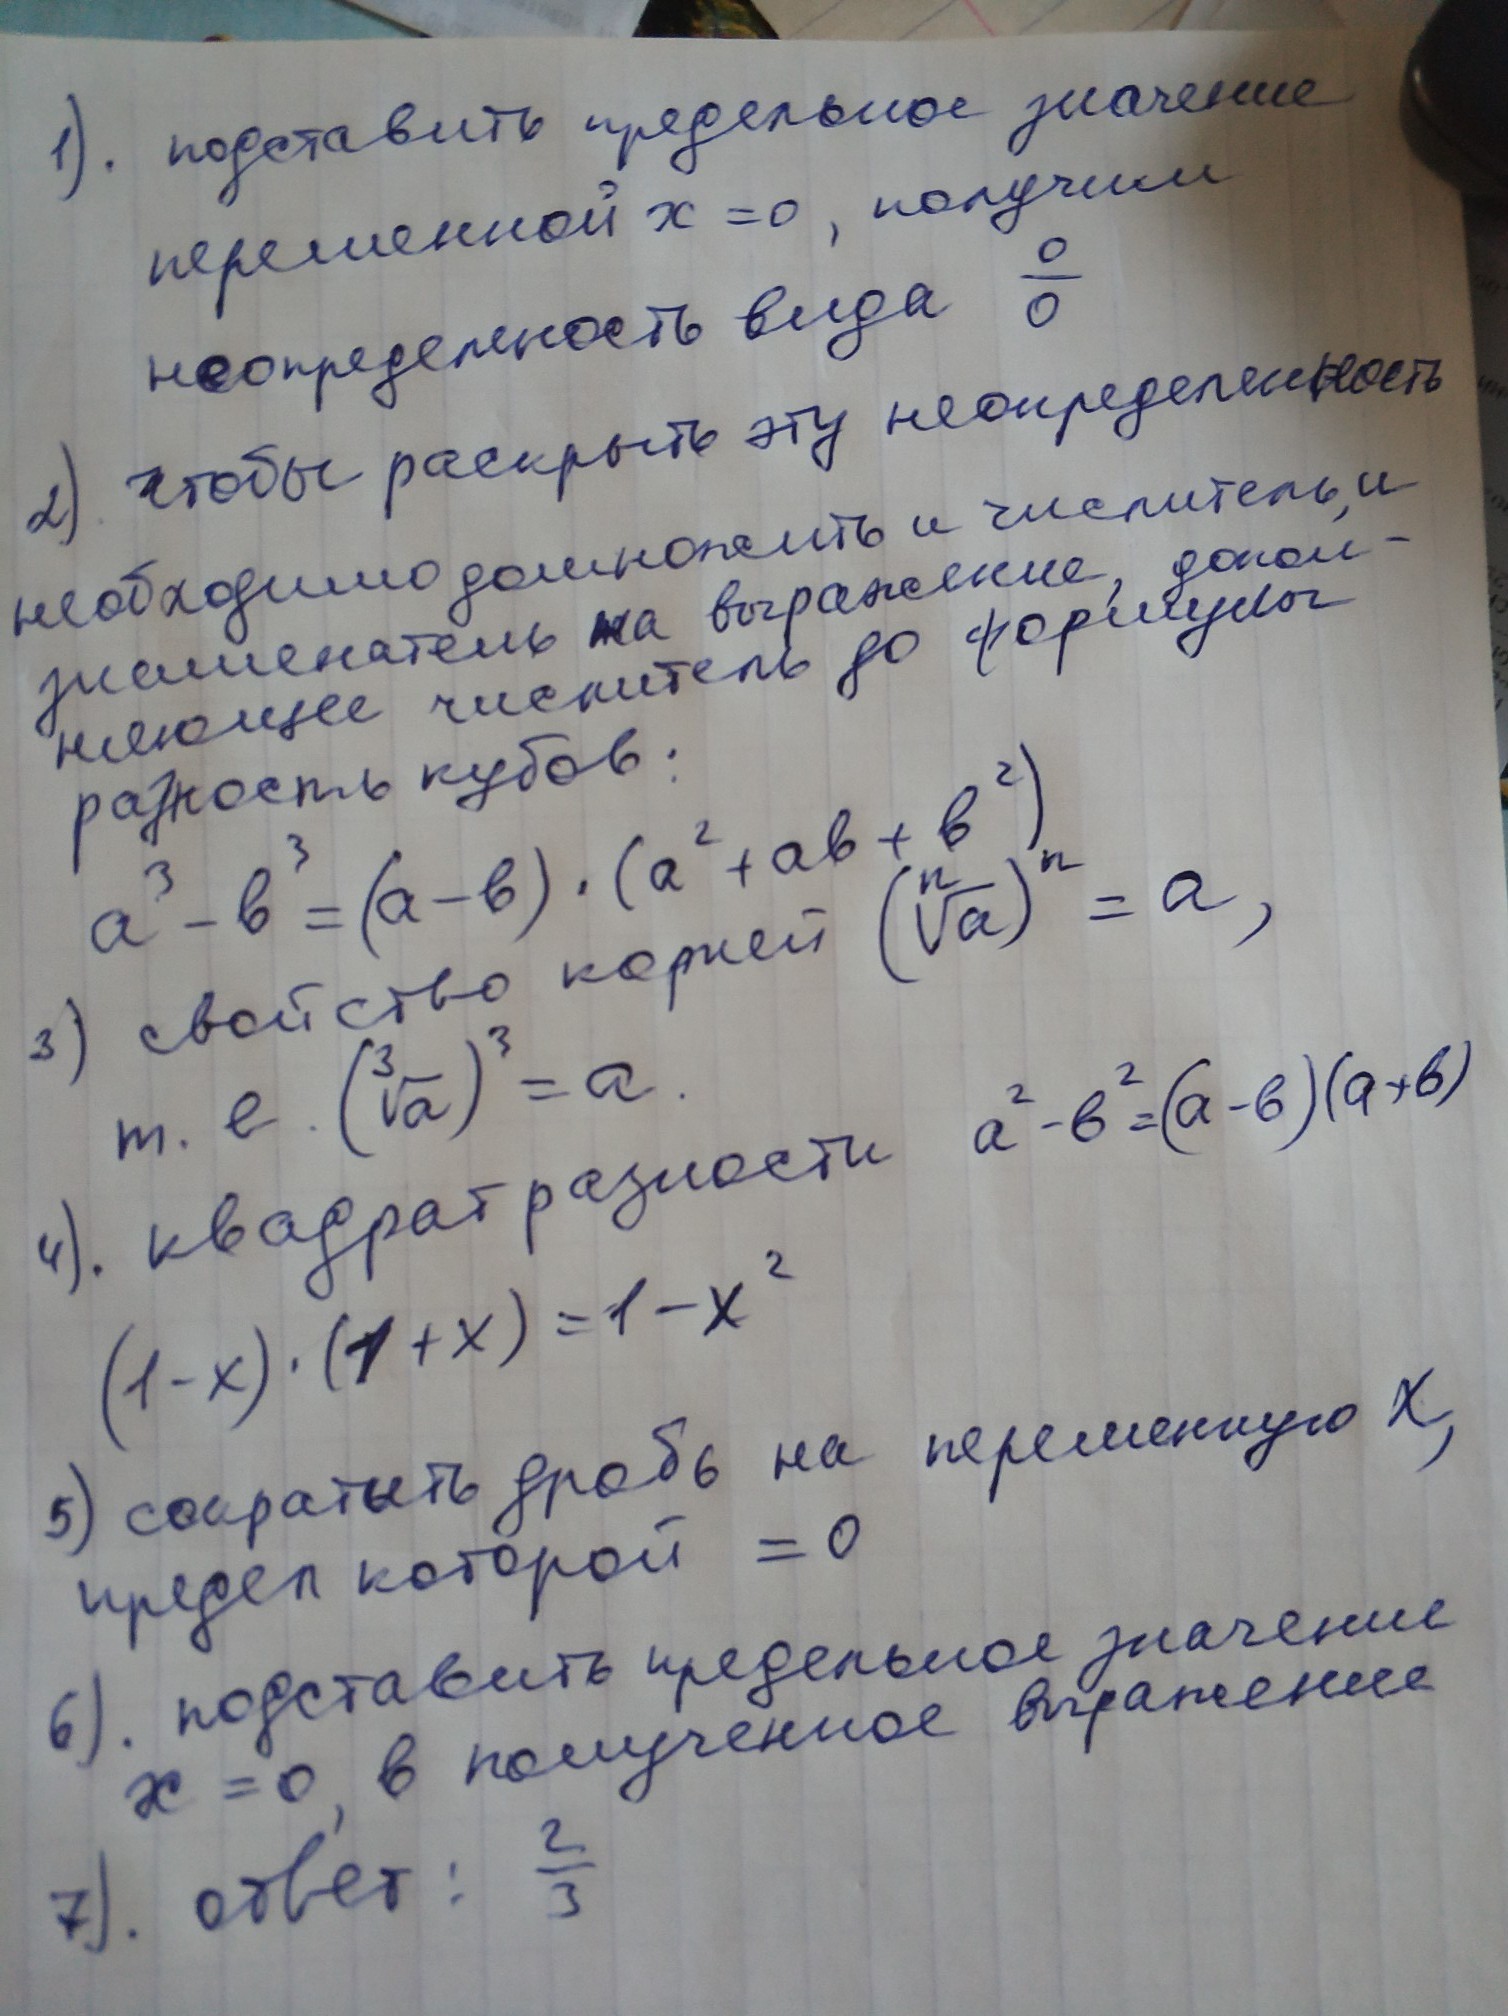 1). подставить предельное значение
переменной x = 0, получим
неопределеность вида 0/0
2). чтобы раскрыть эту неопределенность
необходимо домножить и числитель, и
знаменатель на выражение, допол-
няющее числитель до формулы
разность кубов:
a³ - b³ = (a - b) · (a² + ab + b²)
3) свойство корней (ⁿ√a)ⁿ = a,
т. е. (³√a)³ = a.
4). квадрат разности a² - b² = (a - b)(a + b)
(1 - x) · (1 + x) = 1 - x²
5) сократить дробь на переменную x,
предел которой = 0
6). подставить предельное значение
x = 0, в полученное выражение
7). ответ: 2/3